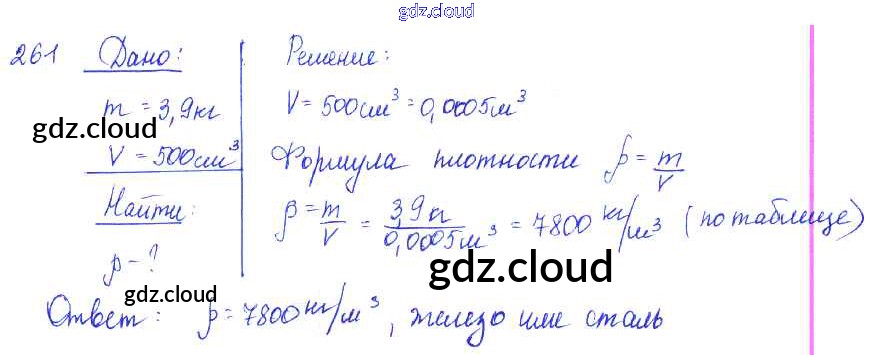 gdz.cloud
261 Дано:
m = 3,9 кг
gdz.cloud
V = 500 см³
Найти:
ρ - ?
gdz.cloud
Решение:
V = 500 см³ = 0,0005 м³
Формула плотности ρ = m/V
ρ = m/V = 3,9 кг/0,0005 м³ = 7800 кг/м³ (по таблице)
gdz.cloud
Ответ: ρ = 7800 кг/м³, железо или сталь